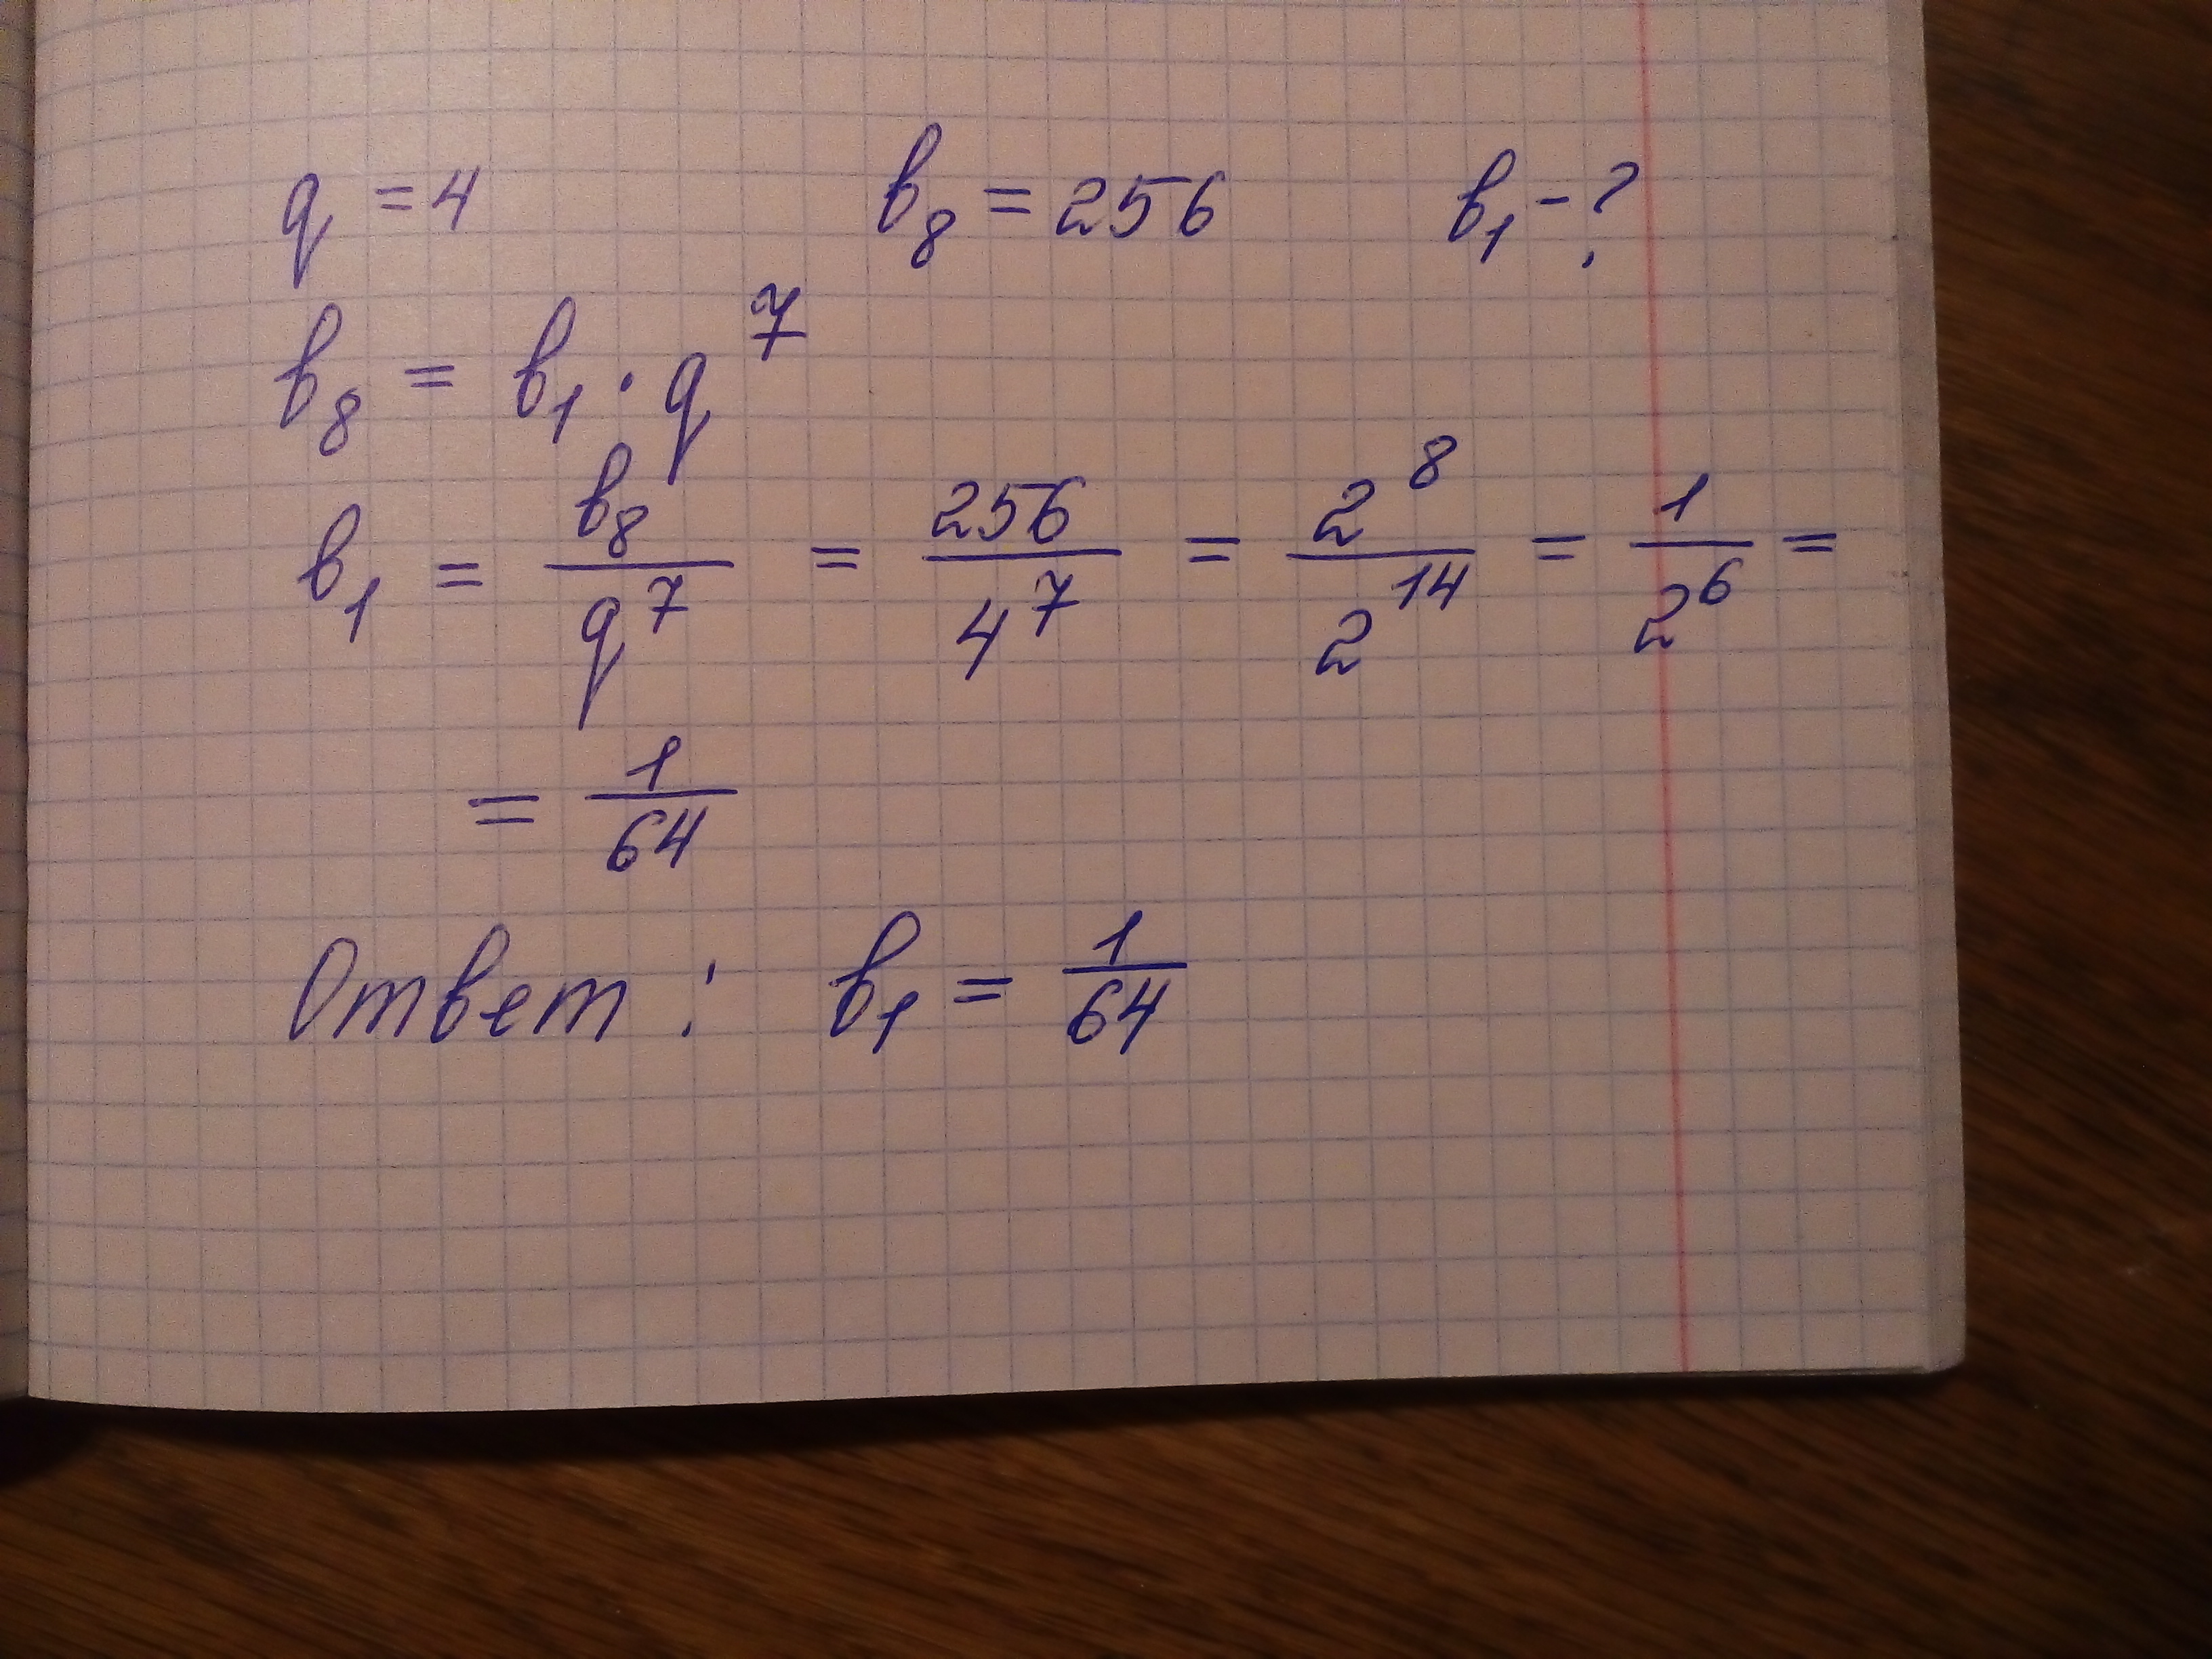 q = 4 b₈ = 256 b₁ - ?
b₈ = b₁ · q⁷
b₁ = b₈/q⁷ = 256/4⁷ = 2⁸/2¹⁴ = 1/2⁶ =
= 1/64
Ответ: b₁ = 1/64